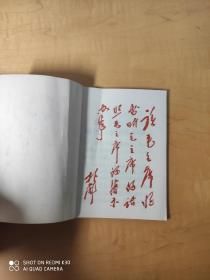 读毛主席的
书，听毛主席的话，
照毛主席的指示
办事
林彪
SHOT ON REDMI K30
AI QUAD CAMERA